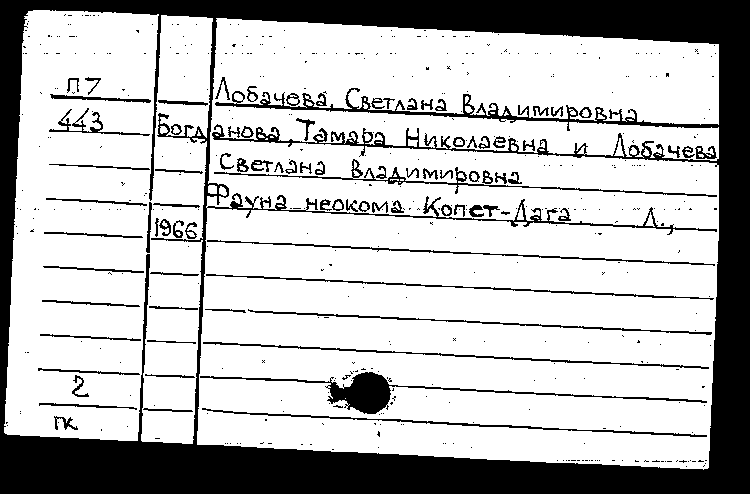 П7 Лобачева, Светлана Владимировна
443 Богданова, Тамара Николаевна и Лобачева
Светлана Владимировна
Фауна неокома Копет-Дага Л.,
1966
2
ПК